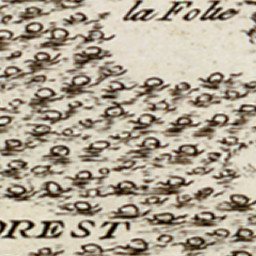 la Folie
OREST